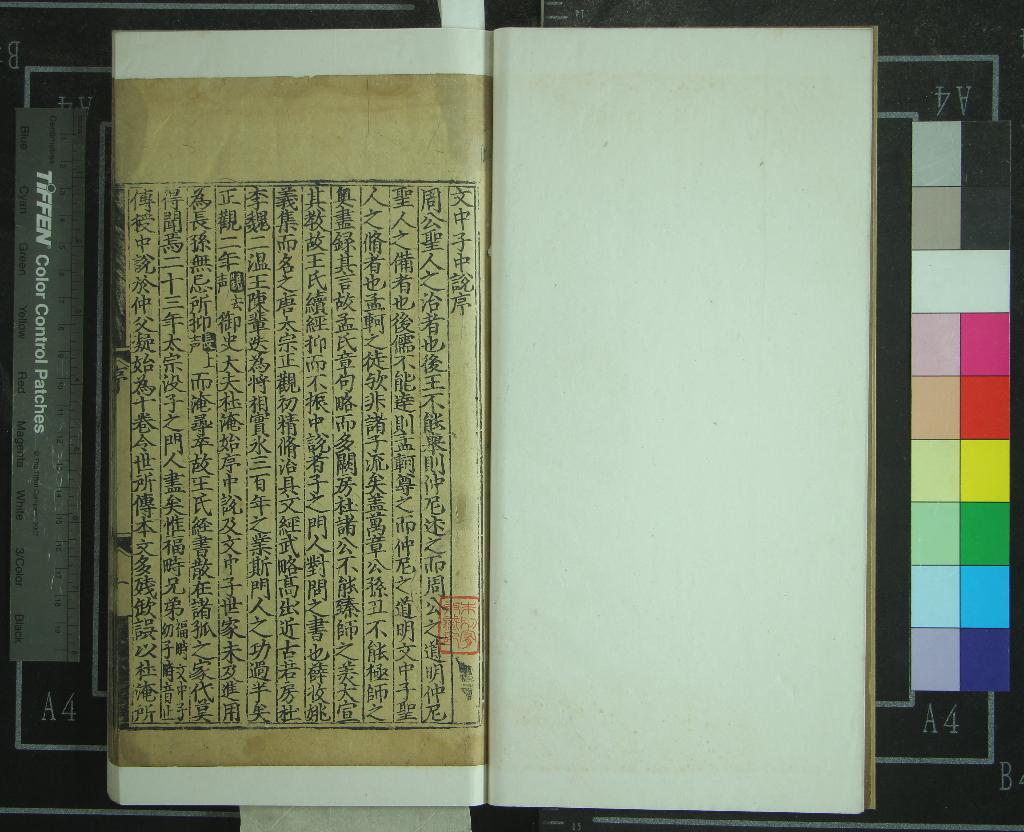 文中子中說序
周公聖人之治者也後王不能舉則仲尼述之而周公之道明仲尼
聖人之備者也後儒不能達則孟軻尊之而仲尼之道明文中子聖
人之脩者也孟軻之徒歟非諸子流矣盖萬章公孫丑不能極師之
奧盡録其言故孟氏章句略而多闕房杜諸公不能臻師之美大宣
其教故王氏續經抑而不振中說者子之門人對問之書也薛收姚
義集而名之唐太宗正觀初精脩治具文經武略髙出近古若房杜
李魏二温王陳輩迭為將相實永三百年之業斯門人之功過半矣
正觀二年御史大夫杜淹始序中說及文中子世家未及進用
為長孫無忌所抑而淹尋卒故王氏經書散在諸孤之家代莫
得聞焉二十三年太宗没子之門人盡矣惟福畤兄弟福畤文中子幼子畤音止
傳授中說於仲父凝始為十卷今世所傳本文多殘缺誤以杜淹所
序
一
TIFFEN Color Control Patches
© The Tiffen Company, 2007
Centimetres
Blue
Cyan
Green
Yellow
Red
Magenta
White
3/Color
Black
A4
A4
A4
A4
B4
B4